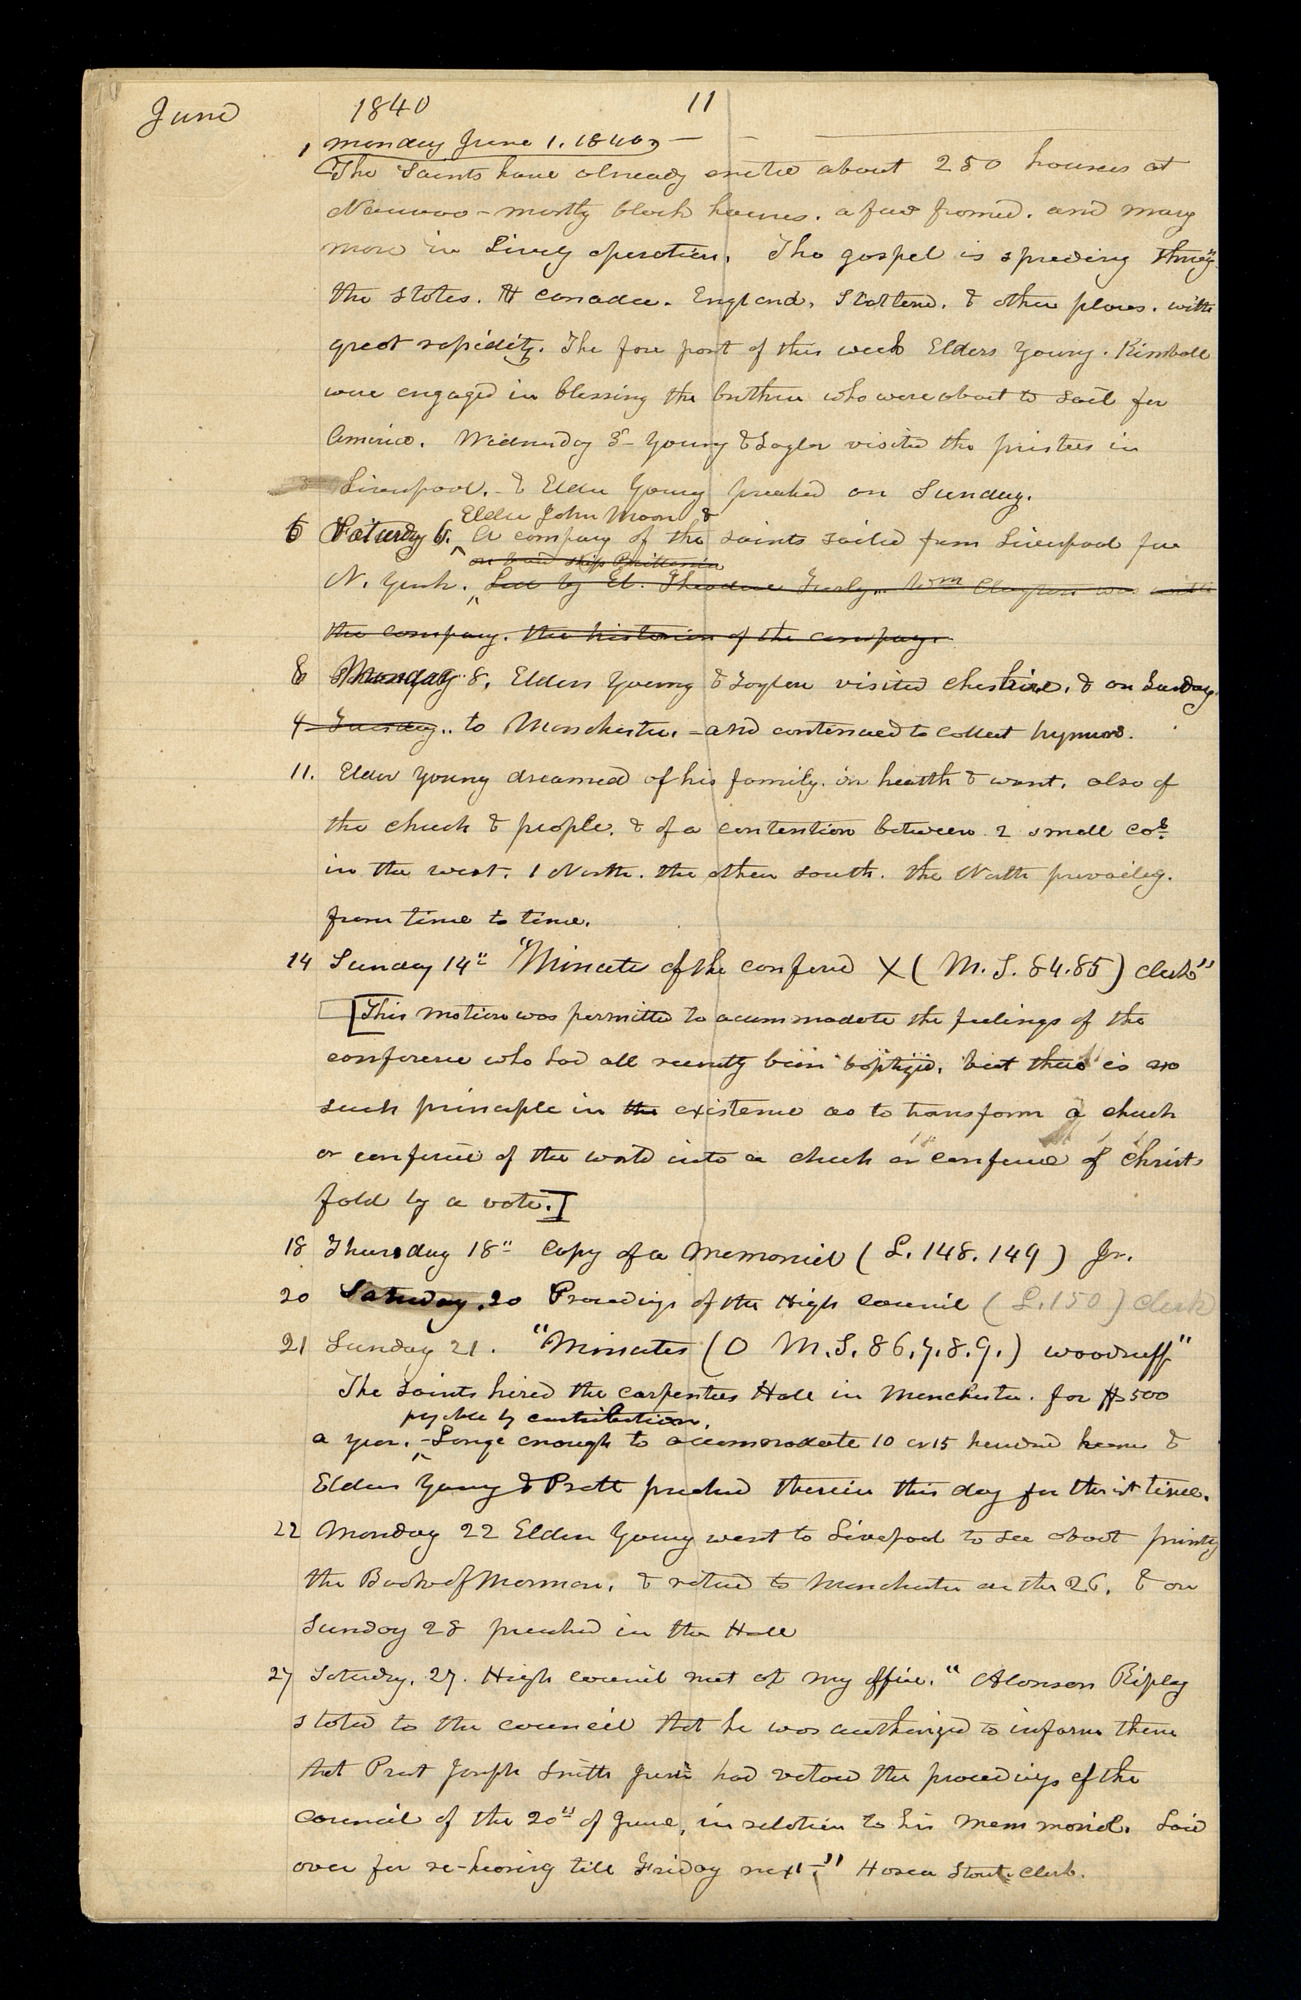 June 1840 11
1 monday June 1. 1840 —
The Saints have already erected about 250 houses at
Nauvoo - mostly block houses. a few framed. and many
more in Lively operation. The gospel is spreding throug
the states. canada. England, Scotland, & other places. with
great rapidity. The fore part of this week Elders Young. Kimball
were engaged in blessing the brethren who were about to sail for
America. Wednesday 3d Young & Taylor visited the priests in
Liverpool. - & Elder Young preached on Sunday.
Elder John Moon &
6 Saturday 6. A company of the saints sailed from Liverpool for
on board ship Brittannia
N. York. Led by El. Theodore Turly. Wm Clayton was with
the company. the historian of the company.
8 Monday 8. Elders Young & Taylor visited Cheshire, & on Sunday
9 Tuesday.. to Manchester. - and continued to collect hymns.
11. Elder Young dreamed of his family. in health & want. also of
the church & people. & of a contention between 2 small cos.
in the west. 1 North. the other south. the North prevailg.
from time to time.
14 Sunday 14" "Minutes of the conference X (M. S. 84.85) clerks"
[This motion was permitted to accummodate the feelings of the
conference who had all recently been baptized, but there is no
such principle in the existence as to transform a church
or conference of the world into a church or conference of Christs
fold by a vote.]
18 Thursday 18" Copy of a Memoriel (L. 148. 149) Jr.
20 Saturday. 20 Procedings of the High Council (L. 150) clerk
21 Sunday 21. "Minutes (O M. S. 86.7.8.9.) woodruff"
The saints hired the carpenters Hall in Manchester. for $500
payable by contribution.
a year. - Large enough to accommodate 10 or 15 hundred &
Elders Young & Pratt preached therein this day for the 1st time.
22 Monday 22 Elder Young went to Liverpool to see about printg
the Book of Mormon. & returned to Manchester on the 26. & on
Sunday 28 preached in the Hall
27 Saturday. 27. High council met at my office. "Alonson Ripley
stated to the council that he was authorized to inform them
that Prest Joseph Smith Junr had vetoed the procedings of the
council of the 20" of June, in relation to his Memmorial. Laid
over for re-hearing till Friday next." Hosea Stout. clerk.